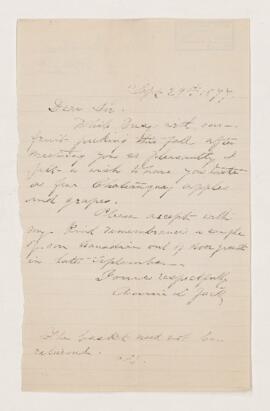 Sept 29th 1877
Dear Sir.
While busy with our
fruit picking this fall, after
meeting you so pleasantly I
felt a wish to have you taste
a few Chateauguay apples
and grapes.
Please accept with
my kind remembrances a sample
of our Canadian out of door growth
in late September.
Yours respectfully
Annie L Jack
The basket need not be
returned.